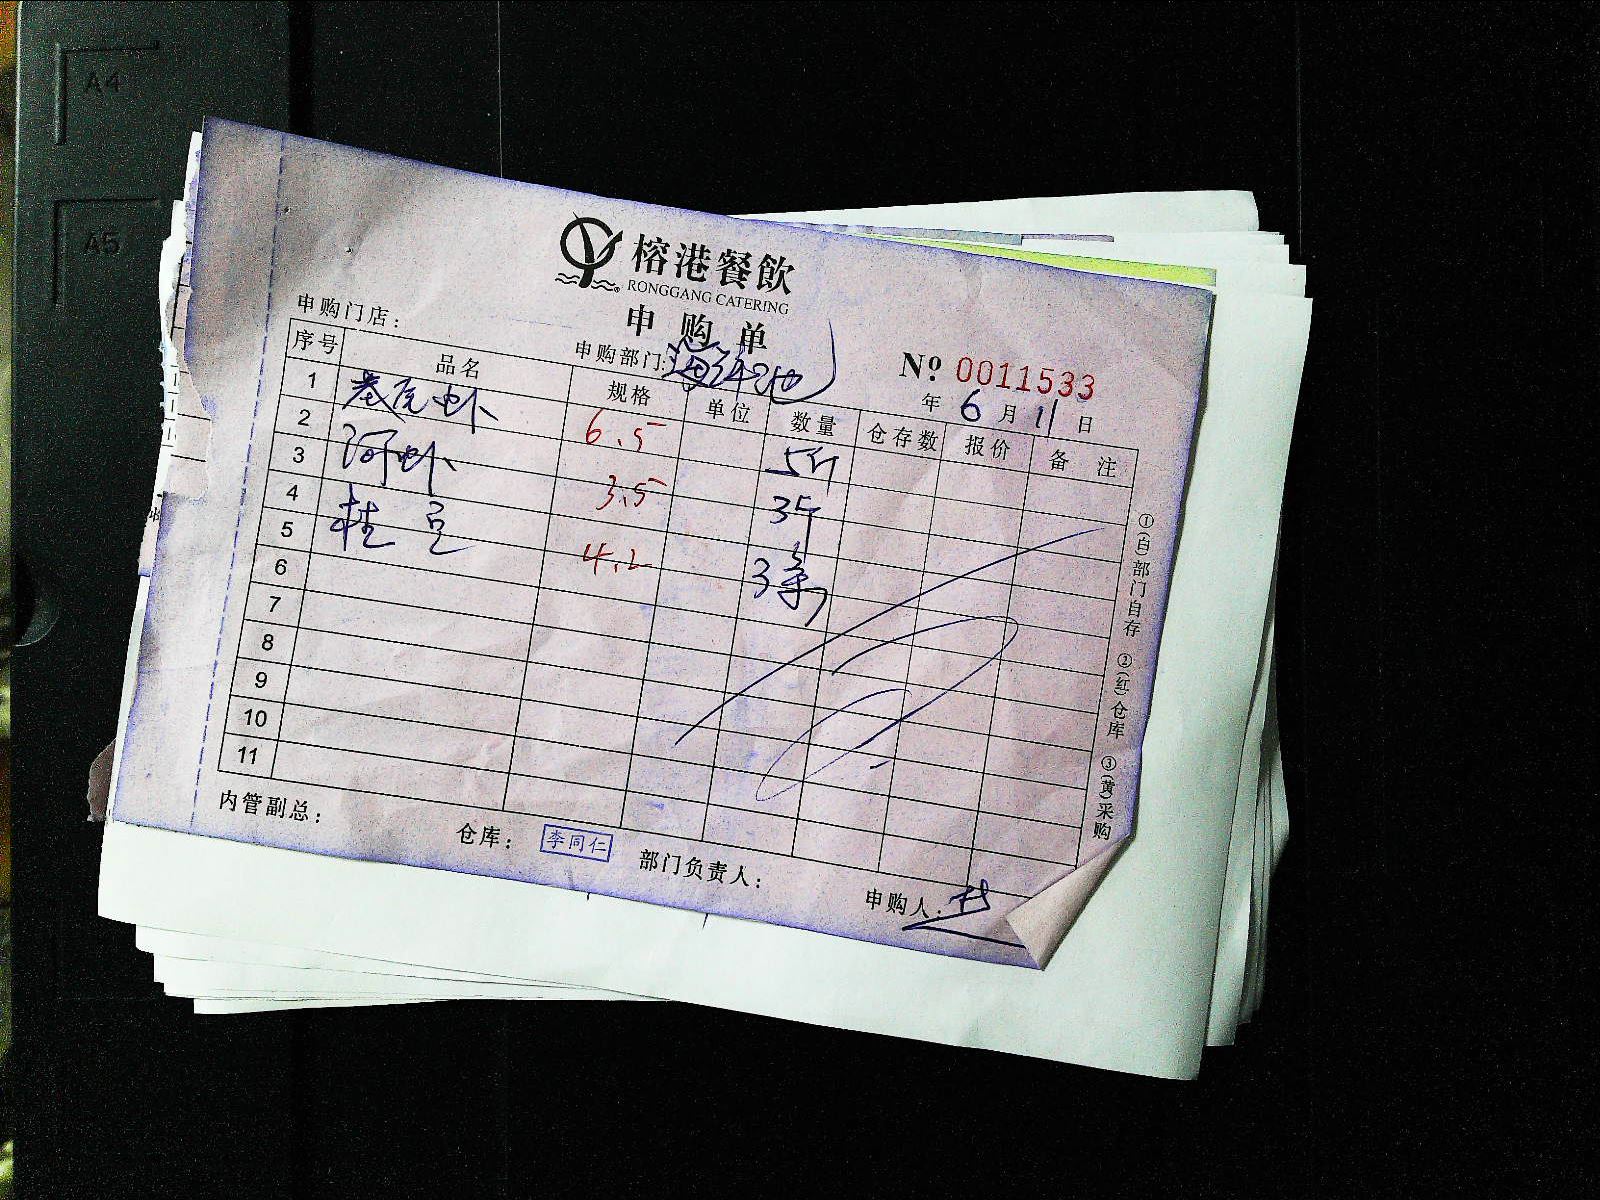 A4
A5
榕港餐飲
RONGGANG CATERING
申购单
申购门店：
申购部门：海鲜池
№ 0011533
年 6 月 11 日
序号 品名 规格 单位 数量 仓存数 报价 备注
1 基庀虾 6.5 5斤
2
3 河虾 3.5 3斤
4
5 桂豆 4.2 3条
6
7
8
9
10
11
①(白)部门自存 ②(红)仓库 ③(黄)采购
内管副总：
仓库：李同仁
部门负责人：
申购人：